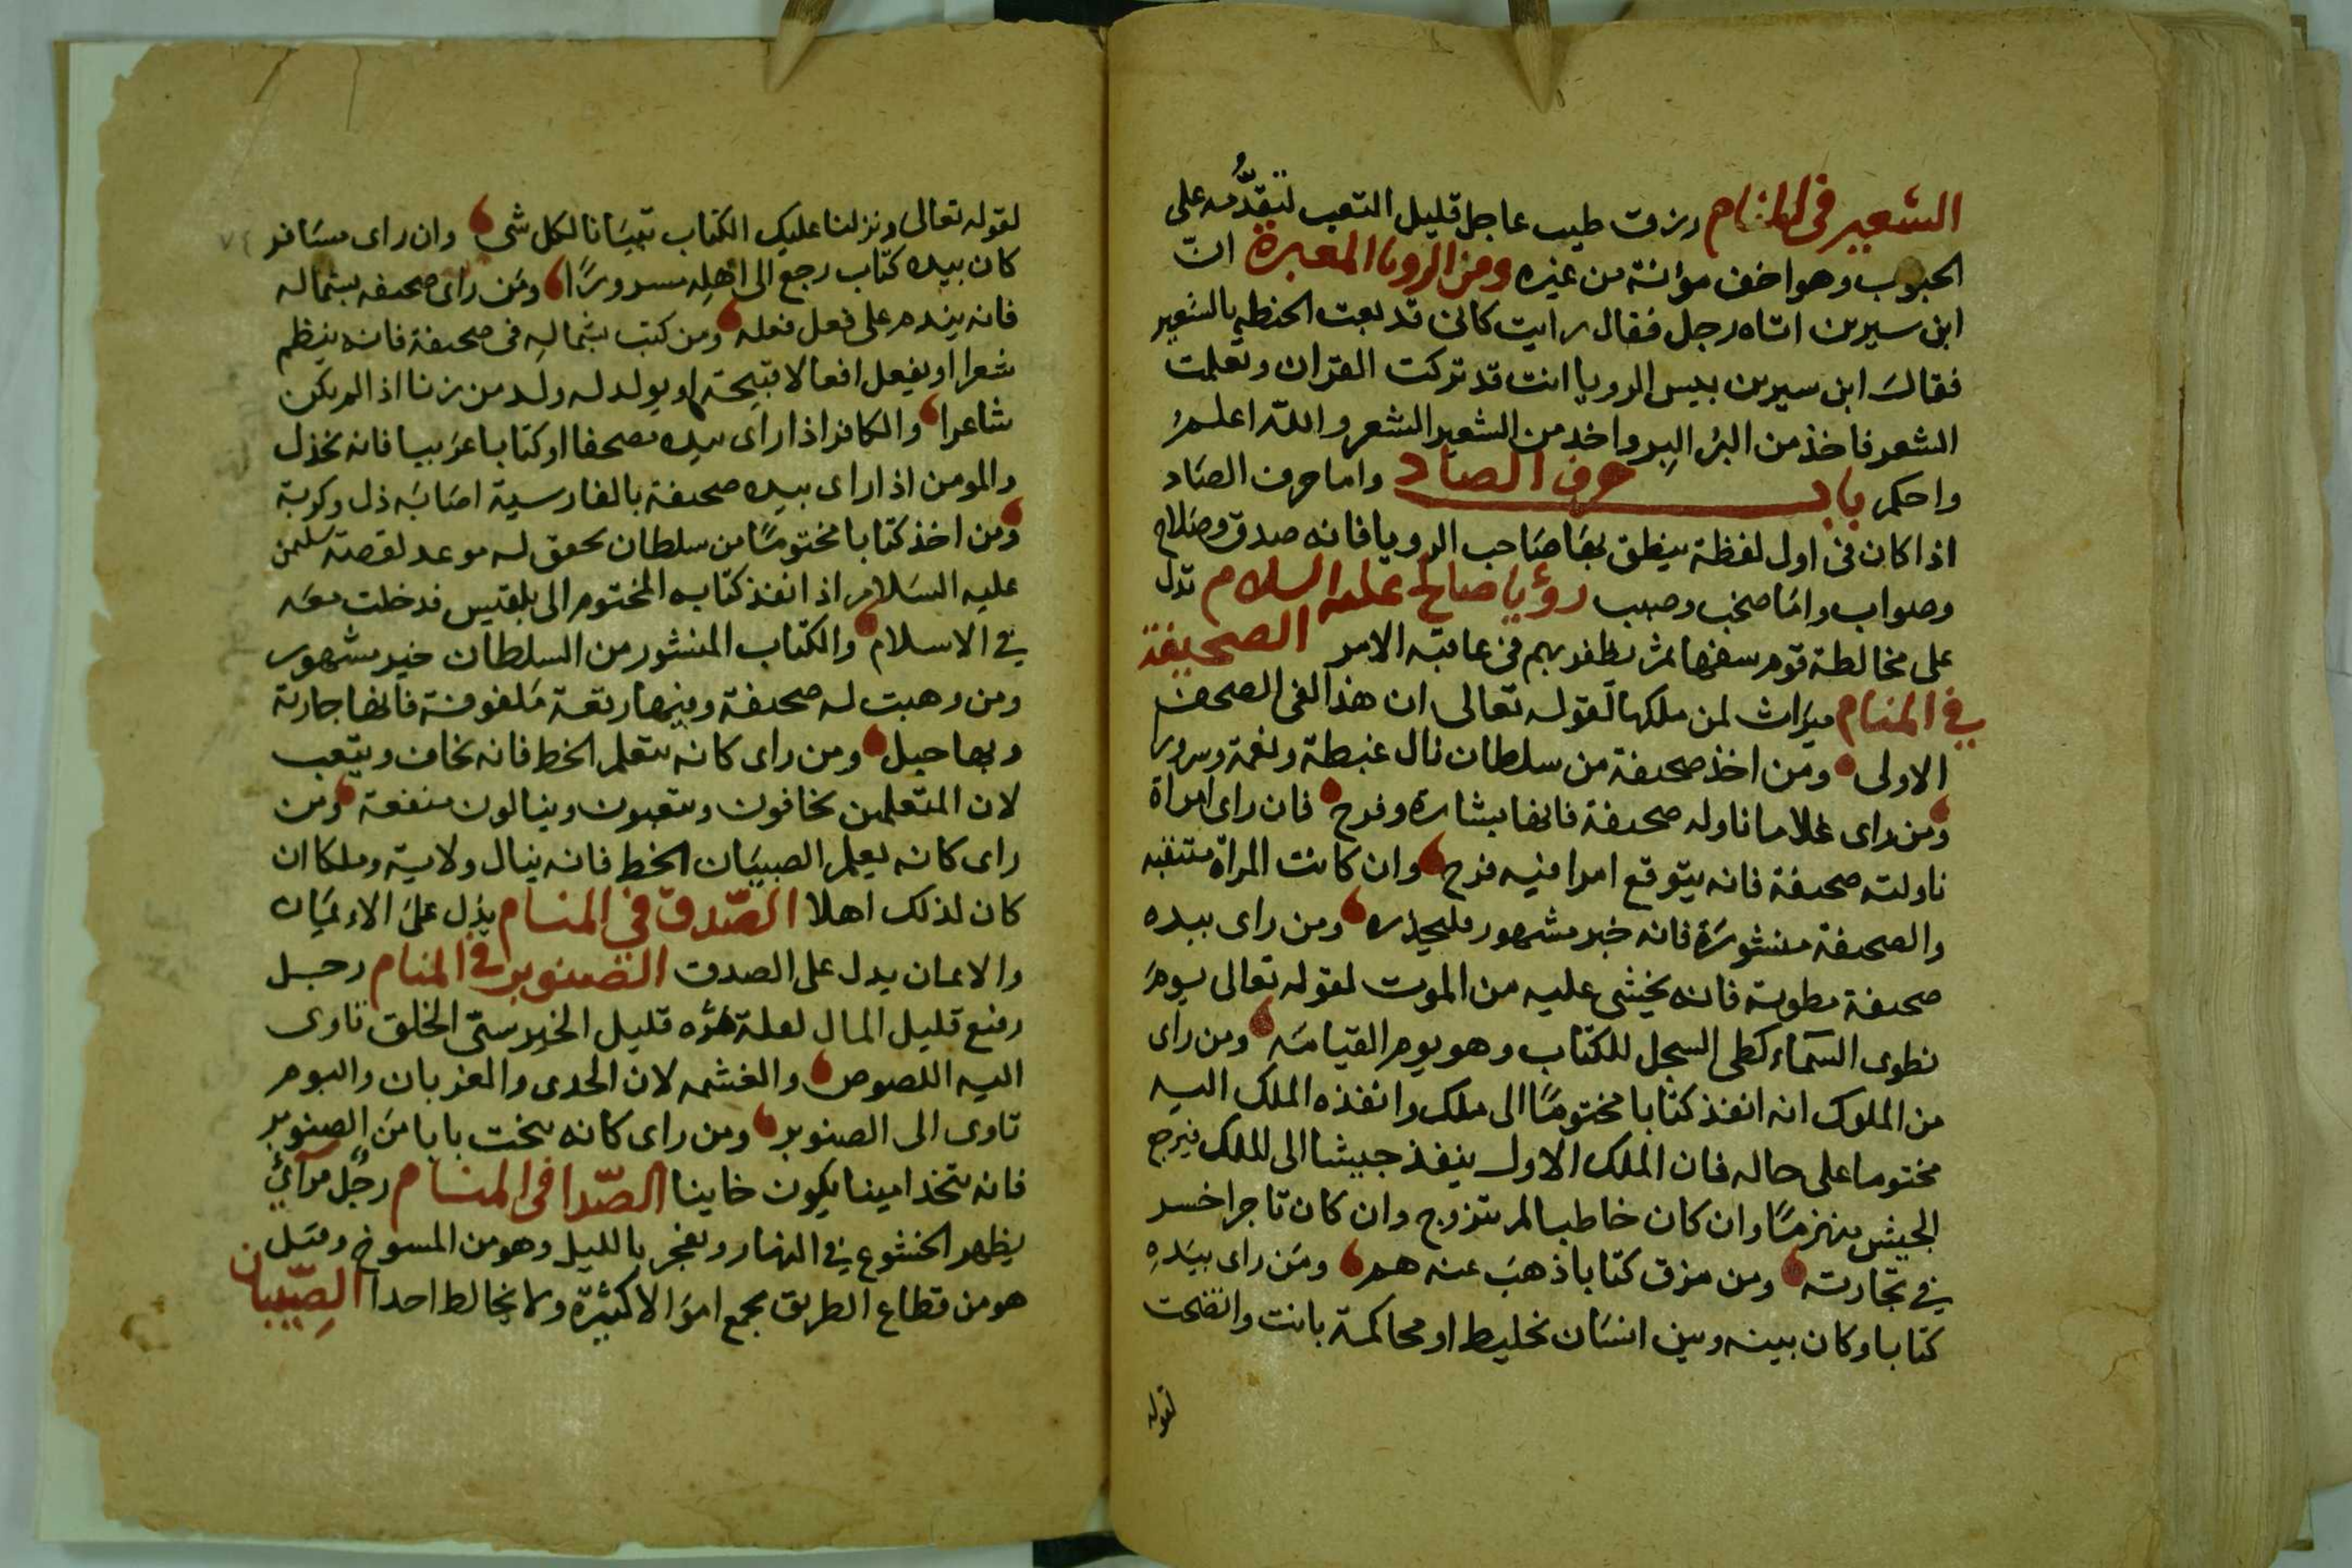 الشعير فى المنام رزق طيب عاجل قليل التعب لتقدُّمه على
الحبوب وهو اخف مؤانة من غيره ومن الرويا المعبرة ان
ابن سيرين اتاه رجل فقال رايت كانى قد بعت الحنطه بالشعير
فقال ابن سيرين بيس الرويا انت قد تركت القران وتعلمت
الشعر فاخذ من البُر البِر واخد من الشعير الشعر والله اعلم
واحكم باب حرف الصاد واما حرف الصاد
اذا كان فى اول لفظة ينطق بها صاحب الرويا فانه صدق وصلاح
وصواب واما صخب وصبب رؤيا صالح عليه السلام تدل
على مخالطة قوم سفها ثم يظفر بهم فى عاقبة الامر الصحيفة
في المنام ميراث لمن ملكها لقوله تعالى ان هذا لفى الصحف
الاولى ومن اخذ صحيفة من سلطان نال غبطة ونعمة وسرورا
ومن راى غلاما ناوله صحيفة فانها بشارة وفرح فان راى امراة
ناولته صحيفة فانه يتوقع امرا فيه فرح وان كانت المراة متنقبه
والصحيفة منشورة فانه خبر مشهور فليحذره ومن راى بيده
صحيفة مطوية فانه يخشى عليه من الموت لقوله تعالى يوم
نطوى السماء كطى السجل للكتاب وهو يوم القيامة ومن راى
من الملوك انه انفذ كتابا مختومًا الى ملك وانفذه الملك اليه
مختوما على حاله فان الملك الاول ينفذ جيشا الى الملك فيرجع
الجيش منهزمًا وان كان خاطبا لم يتزوج وان كان تاجرا خسر
في تجارته ومن مزق كتابا ذهب عنه هم ومن راى بيده
كتابا وكان بينه وبين انسان تخليط او محاكمة بانت واتضحت
لقوله
لقوله تعالى ونزلنا عليك الكتاب تبيانا لكل شى وان راى مسافر
كان بيده كتاب رجع الى اهله مسرورًا ومن راى صحيفه بشماله
فانه يندم على فعل فعله ومن كتب بشماله فى صحيفة فانه ينظم
شعرا او يفعل افعالا قبيحة او يولد له ولد من زنا اذا لم يكن
شاعرا والكافر اذا راى بيده مصحفا او كتابا عربيا فانه يخذل
والمومن اذا راى بيده صحيفة بالفارسية اصابه ذل وكربة
ومن اخذ كتابا مختومًا من سلطان تحقق له موعد لقصة سليمن
عليه السلام اذ انفذ كتابه المختوم الى بلقيس فدخلت معه
في الاسلام والكتاب المنشور من السلطان خبر مشهور
ومن وهبت له صحيفة وفيها رقعة ملفوفة فانها جارية
وبها حبل ومن راى كانه يتعلم الخط فانه يخاف ويتعب
لان المتعلمين يخافون ويتعبون وينالون منفعة ومن
راى كانه يعلم الصبيان الخط فانه ينال ولاية وملكا ان
كان لذلك اهلا الصّدق في المنام يدل على الايمان
والايمان يدل على الصدق الصنوبر في المنام رجل
رفيع قليل المال لعلة ثمره قليل الخير ستى الخلق تاوى
اليه اللصوص والغشمه لان الحدى والغربان والبوم
تاوى الى الصنوبر ومن راى كانه ينحت بابا من الصنوبر
فانه يتخذ امينا يكون خاينا الصّدا فى المنام رجُل مرائي
يظهر الخشوع في النهار ويفجر بالليل وهو من المسوخ وقيل
هو من قطاع الطريق يجمع اموالا كثيرة ولا يخالط احدا الصِّبيان